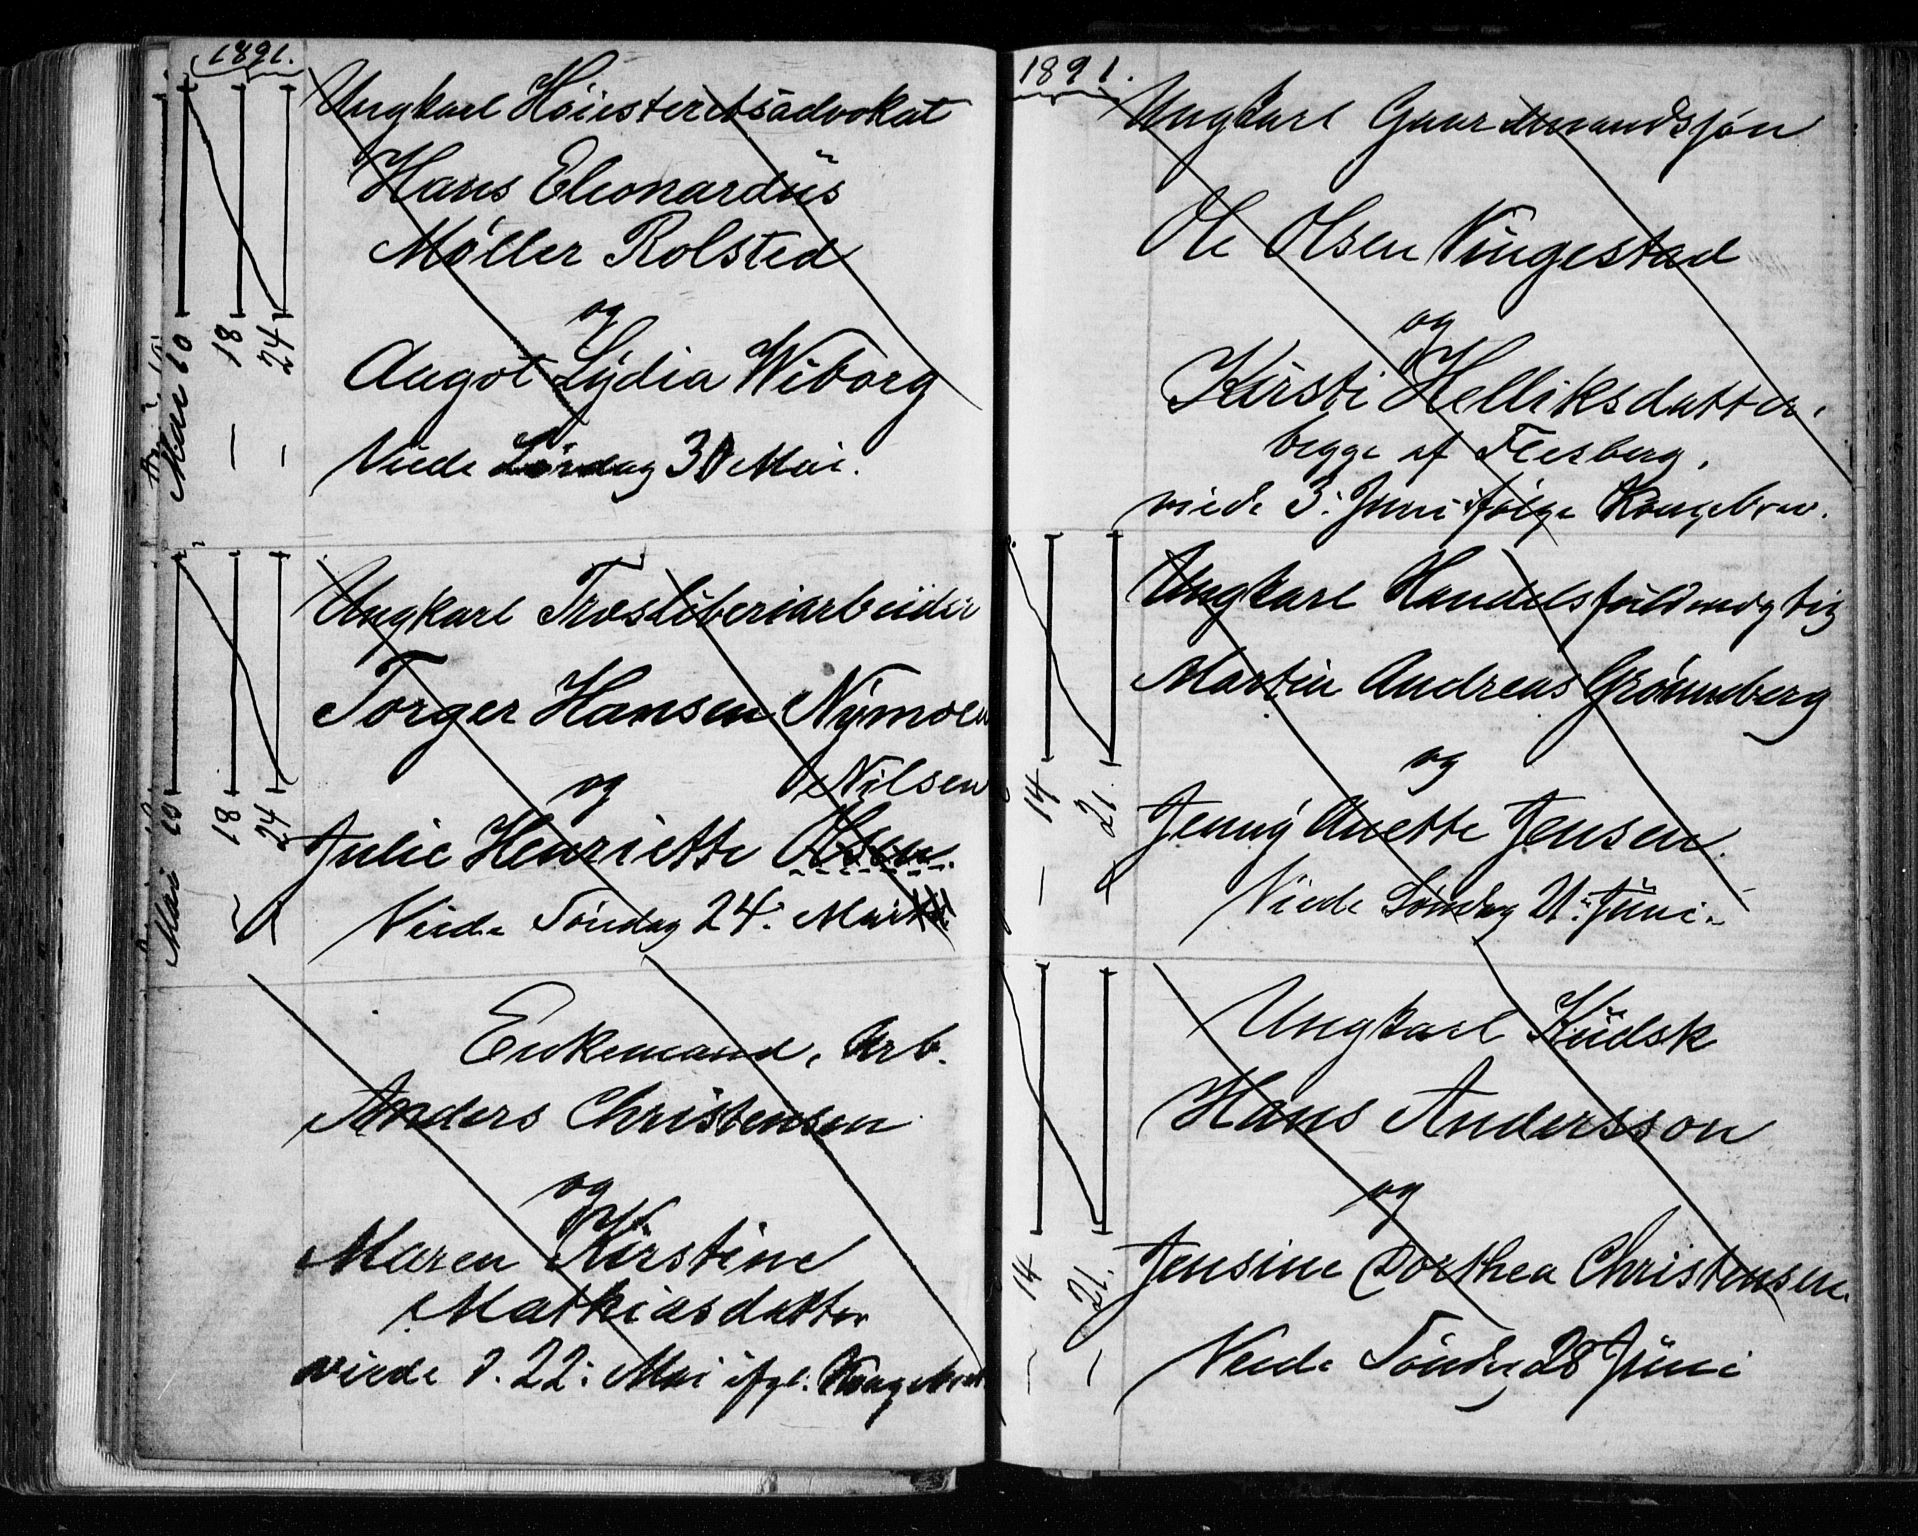 1891.
Ungkarl Høiesteretsadvokat
Hans Eleonardus
Møller Rolsted
og
Aagot Lydia Wiborg
Viede Lørdag 30 Mai.
Mai 10
18
24
Ungkarl Træsliberiarbeider
Torger Hansen Nymoen
og Nilsen
Julie Henriette Olsen.
Viede Søndag 24: Mai
Mai 10
18
24
Enkemand, Arb.
Anders Christensen
og
Maren Kirstine
Mathiasdatter
viede d. 22: Mai ifgl. Kongebrev
1891.
Ungkarl Gaardmandssøn
Ole Olsen Vingestad
og
Kirsti Helliksdatter.
begge af Flesberg.
viede 3: Juni ifølge Kongebrev.
Ungkarl Handelsfuldmægtig
Martin Andreas Grønneberg
og
Jenny Anette Jensen.
Viede Søndag 21: Juni
14
21.
Ungkarl Kudsk
Hans Andersson
og
Jensine Dorthea Christensen.
Viede Søndag 28 Juni
14
21.